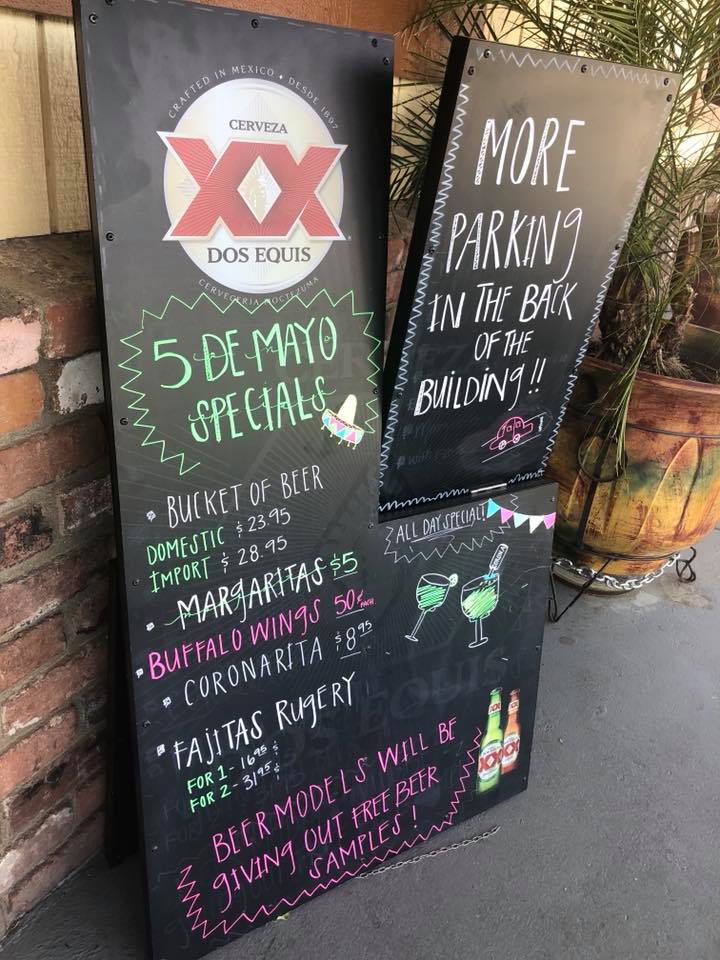 CRAFTED IN MEXICO • DESDE 1897
CERVEZA
XX
DOS EQUIS
CERVECERIA MOCTEZUMA
5 DE MAYO
SPECIALS
• BUCKET OF BEER
DOMESTIC $23.95
IMPORT $28.95
• MARGARITAS $5
• BUFFALO WINGS 50¢ EACH
• CORONARITA $8.95
• FAJITAS RUGERY
FOR 1 - 16.95
FOR 2 - 31.95
BEER MODELS WILL BE
GIVING OUT FREE BEER
SAMPLES!
MORE
PARKING
IN THE BACK
OF THE
BUILDING!!
ALL DAY SPECIAL!
XX
XX